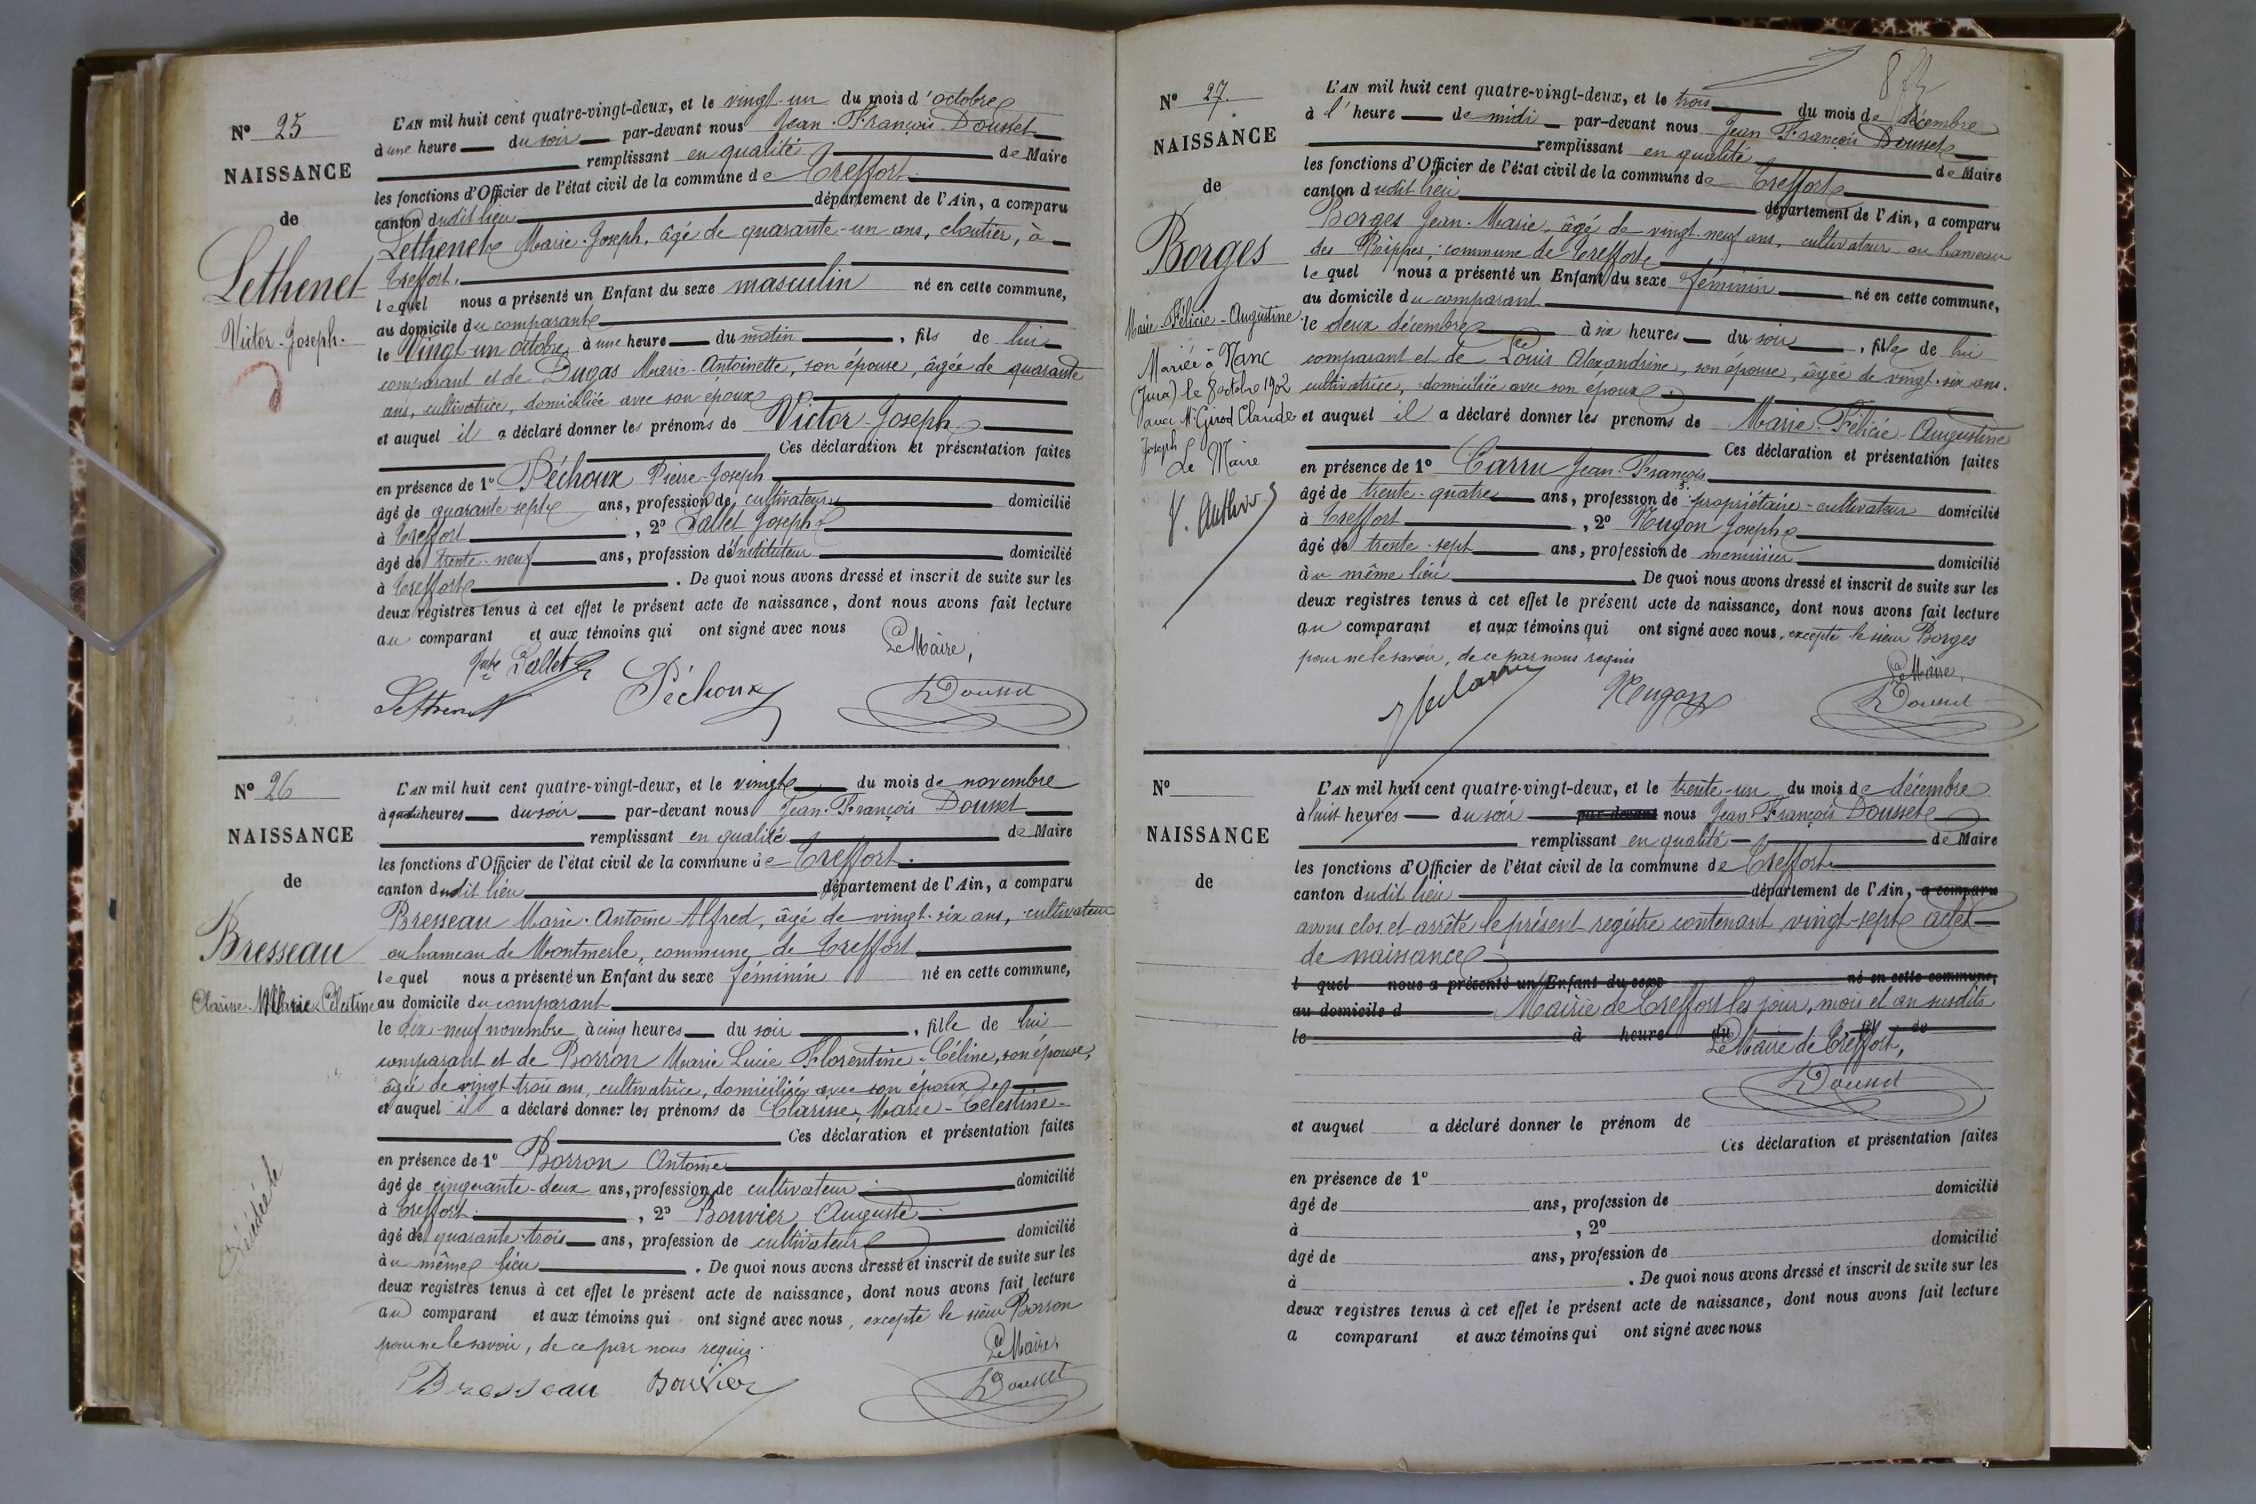 N° 25
NAISSANCE
de
Lethenet
Victor-Joseph.
L'AN mil huit cent quatre-vingt-deux, et le vingt-un du mois d'octobre
à une heure du soir par-devant nous Jean-François Dousset
remplissant en qualité de Maire
les fonctions d'Officier de l'état civil de la commune de Treffort
canton dudit lieu département de l'Ain, a comparu
Lethenet Marie-Joseph, âgé de quarante-un ans, cloutier, à
Treffort.
lequel nous a présenté un Enfant du sexe masculin né en cette commune,
au domicile du comparant
le vingt-un octobre à une heure du matin, fils de lui
comparant et de Dugas Marie-Antoinette, son épouse, âgée de quarante
ans, cultivatrice, domiciliée avec son époux
et auquel il a déclaré donner les prénoms de Victor-Joseph
Ces déclaration et présentation faites
en présence de 1° Péchoux Pierre-Joseph
âgé de quarante sept ans, profession de cultivateur domicilié
à Treffort, 2° Lallet Joseph
âgé de trente-neuf ans, profession d'instituteur domicilié
à Treffort. De quoi nous avons dressé et inscrit de suite sur les
deux registres tenus à cet effet le présent acte de naissance, dont nous avons fait lecture
au comparant et aux témoins qui ont signé avec nous
Le Maire,
Lallet
Lethenet Péchoux Dousset
N° 26
NAISSANCE
de
Bresseau
Clarine-Marie-Célestine
Décédée le
L'AN mil huit cent quatre-vingt-deux, et le vingt du mois de novembre
à quatre heures du soir par-devant nous Jean-François Dousset
remplissant en qualité de Maire
les fonctions d'Officier de l'état civil de la commune de Treffort.
canton dudit lieu département de l'Ain, a comparu
Bresseau Marie-Antoine Alfred, âgé de vingt-six ans, cultivateur
au hameau de Montmerle, commune de Treffort
lequel nous a présenté un Enfant du sexe féminin né en cette commune,
au domicile du comparant
le dix-neuf novembre à cinq heures du soir, fille de lui
comparant et de Borron Marie Lucie Florentine-Céline, son épouse,
âgée de vingt-trois ans, cultivatrice, domiciliée avec son époux
et auquel il a déclaré donner les prénoms de Clarine-Marie-Célestine
Ces déclaration et présentation faites
en présence de 1° Borron Antoine
âgé de cinquante-deux ans, profession de cultivateur domicilié
à Treffort, 2° Bouvier Auguste
âgé de quarante-trois ans, profession de cultivateur domicilié
au même lieu. De quoi nous avons dressé et inscrit de suite sur les
deux registres tenus à cet effet le présent acte de naissance, dont nous avons fait lecture
au comparant et aux témoins qui ont signé avec nous, excepté le sieur Borron
pour ne le savoir, de ce par nous requis.
Le Maire,
Bresseau Bouvier Dousset
N° 27.
NAISSANCE
de
Borges
Marie-Félicie-Augustine
Mariée à Nanc
(Jura) le 8 octobre 1902
avec Mr Girod Claude
Joseph
Le Maire
L'AN mil huit cent quatre-vingt-deux, et le trois du mois de décembre
à l'heure de midi par-devant nous Jean François Dousset
remplissant en qualité de Maire
les fonctions d'Officier de l'état civil de la commune de Treffort
canton dudit lieu département de l'Ain, a comparu
Borges Jean-Marie, âgé de vingt-neuf ans, cultivateur au hameau
des Rippes, commune de Treffort
lequel nous a présenté un Enfant du sexe féminin né en cette commune,
au domicile du comparant
le deux décembre à six heures du soir, fille de lui
comparant et de Louis Alexandrine, son épouse, âgée de vingt-six ans.
cultivatrice, domiciliée avec son époux.
et auquel il a déclaré donner les prénoms de Marie-Félicie-Augustine
Ces déclaration et présentation faites
en présence de 1° Carru Jean-François
âgé de trente-quatre ans, profession de propriétaire-cultivateur domicilié
à Treffort, 2° Nugon Joseph
âgé de trente-sept ans, profession de menuisier domicilié
au même lieu. De quoi nous avons dressé et inscrit de suite sur les
deux registres tenus à cet effet le présent acte de naissance, dont nous avons fait lecture
au comparant et aux témoins qui ont signé avec nous, excepté le sieur Borges
pour ne le savoir, de ce par nous requis
Le Maire,
Nugon Dousset
N°
NAISSANCE
de
L'AN mil huit cent quatre-vingt-deux, et le trente-un du mois de décembre
à huit heures du soir par-devant nous Jean-François Dousset
remplissant en qualité de Maire
les fonctions d'Officier de l'état civil de la commune de Treffort
canton dudit lieu département de l'Ain, a comparu
avons clos et arrêté le présent registre contenant vingt-sept actes
de naissance
l quel nous a présenté un Enfant du sexe né en cette commune,
au domicile d Mairie de Treffort les jour, mois et an susdits
le à heure du fil de
Le Maire de Treffort,
Dousset
et auquel a déclaré donner le prénom de
Ces déclaration et présentation faites
en présence de 1°
âgé de ans, profession de domicilié
à , 2°
âgé de ans, profession de domicilié
à . De quoi nous avons dressé et inscrit de suite sur les
deux registres tenus à cet effet le présent acte de naissance, dont nous avons fait lecture
a comparant et aux témoins qui ont signé avec nous